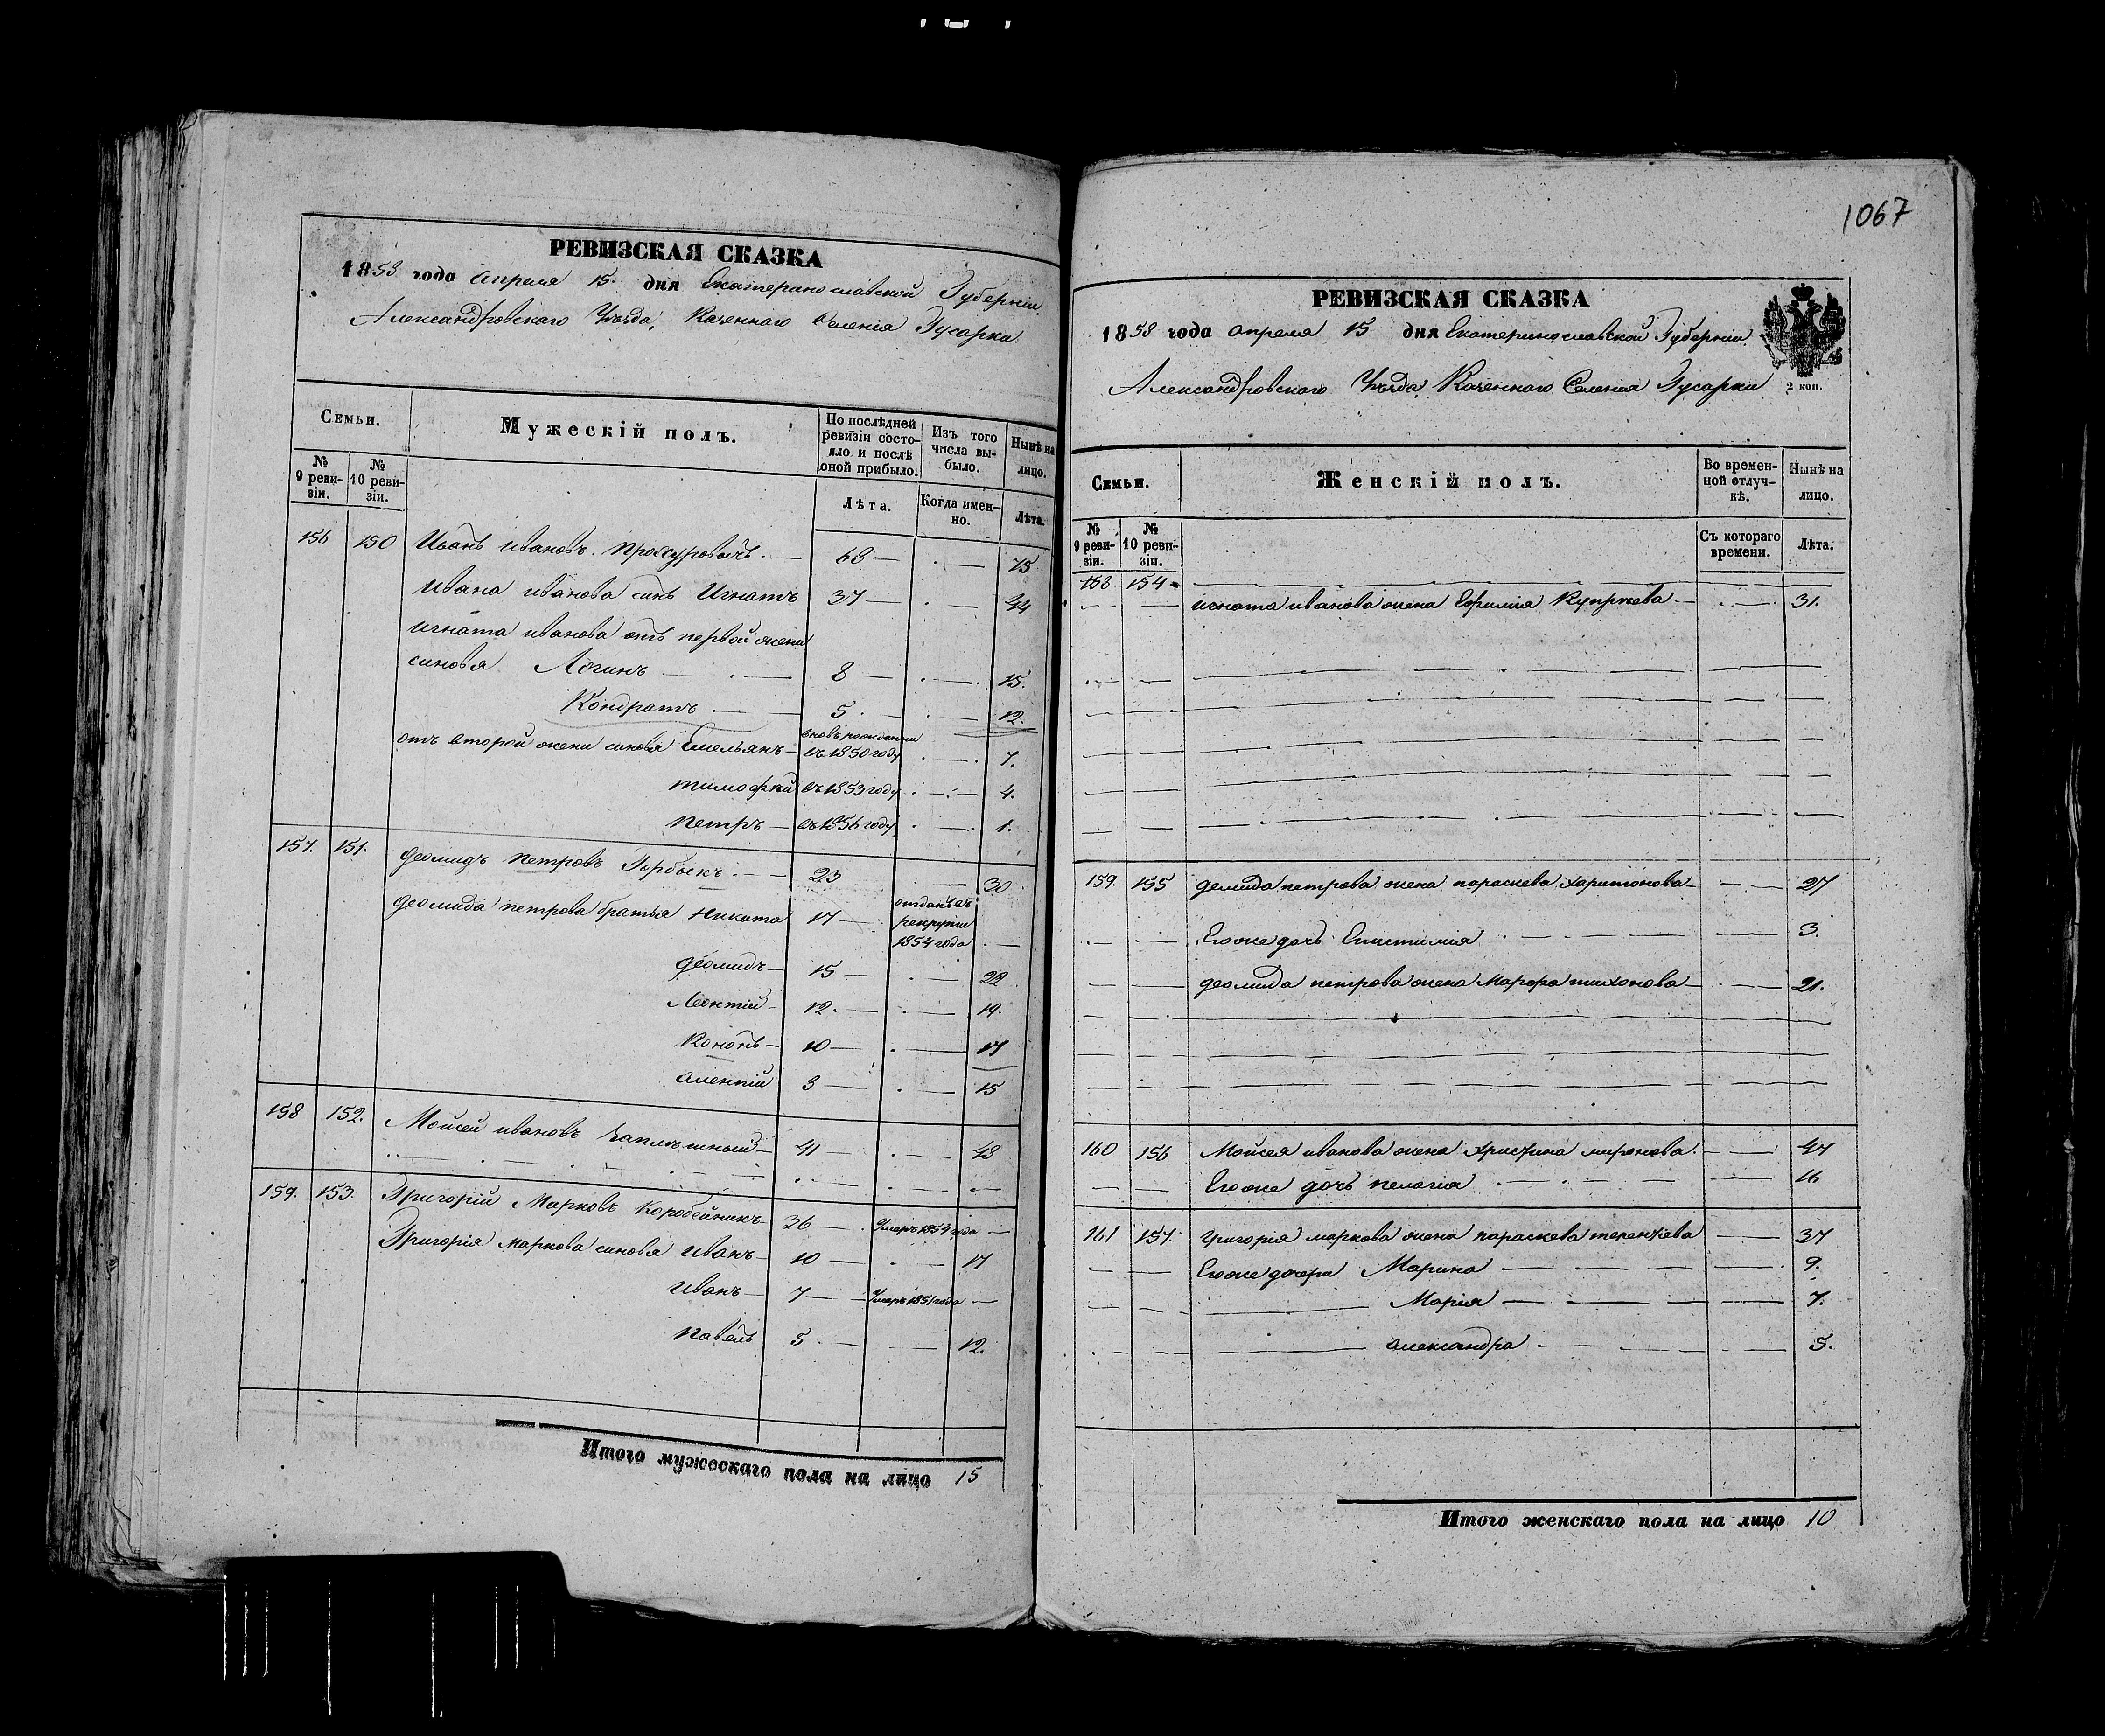 РЕВИЗСКАЯ СКАЗКА
1858 года апреля 15 дня Екатеринославской Губернии
Александровскаго Уѣзда, Казеннаго Селенія Гусарка
Семьи.
Мужескій полъ.
По послѣдней ревизіи состояло и послѣ оной прибыло.
Изъ того числа выбыло.
Нынѣ на лицо.
№ 9 ревизіи.
№ 10 ревизіи.
Лѣта.
Когда именно.
Лѣта.
156 150 Иванъ Ивановъ 68 — 75
Ивана Иванова сынъ Игнатъ 37 — 44
Игната Иванова отъ первой жены
синовья Логинъ — 8 — 15.
Кондратъ — 5 — 12.
отъ второй жени синовья Емельянъ — вновь рожденни въ 1850 году — 7.
Тимофѣй въ 1853 году — 4.
Петръ — въ 1856 году — 1.
157. 151. Деомидъ Петровъ Горбыкъ — 23 — 30
Деомида Петрова братья Никита 17 — отданъ въ рекрути 1854 года —
Деомидъ — 15 — 22
Леонтій — 12. — 19.
Кононъ — 10 — 17
Алексій — 15
158 152. Мойсей Ивановъ 41 — 48
159. 153. Григорій Марковъ Коробейникъ — 36 — Умеръ 1854 года —
Григорія Маркова синовья Иванъ — 10 — 17
Иванъ — 7 — Умеръ 1851 года —
Павелъ 5 — 12.
Итого мужескаго пола на лицо 15
1067
РЕВИЗСКАЯ СКАЗКА
1858 года апреля 15 дня Екатеринославской Губерніи
Александровскаго Уѣзда, Казеннаго Селенія Гусарки
2 коп.
Семьи.
Женскій полъ.
Во временной отлучкѣ.
Нынѣ на лицо.
№ 9 ревизіи.
№ 10 ревизіи.
Съ котораго времени.
Лѣта.
158 154
Игната Иванова жена Ефимія — 31.
159. 155 Демида Петрова жена Параскева Харитонова — 27
Его же дочь — 3.
Деомида Петрова жена Марфа Тихонова — 21.
160 156 Мойсея Иванова жена Христина Миронова — 47
Его же дочь Пелагія — 16
161 157. Григорія Маркова жена Параскева Терентева — 37
Его же дочери Марина — 9.
Марія — 7.
Александра — 5.
Итого женскаго пола на лицо 10